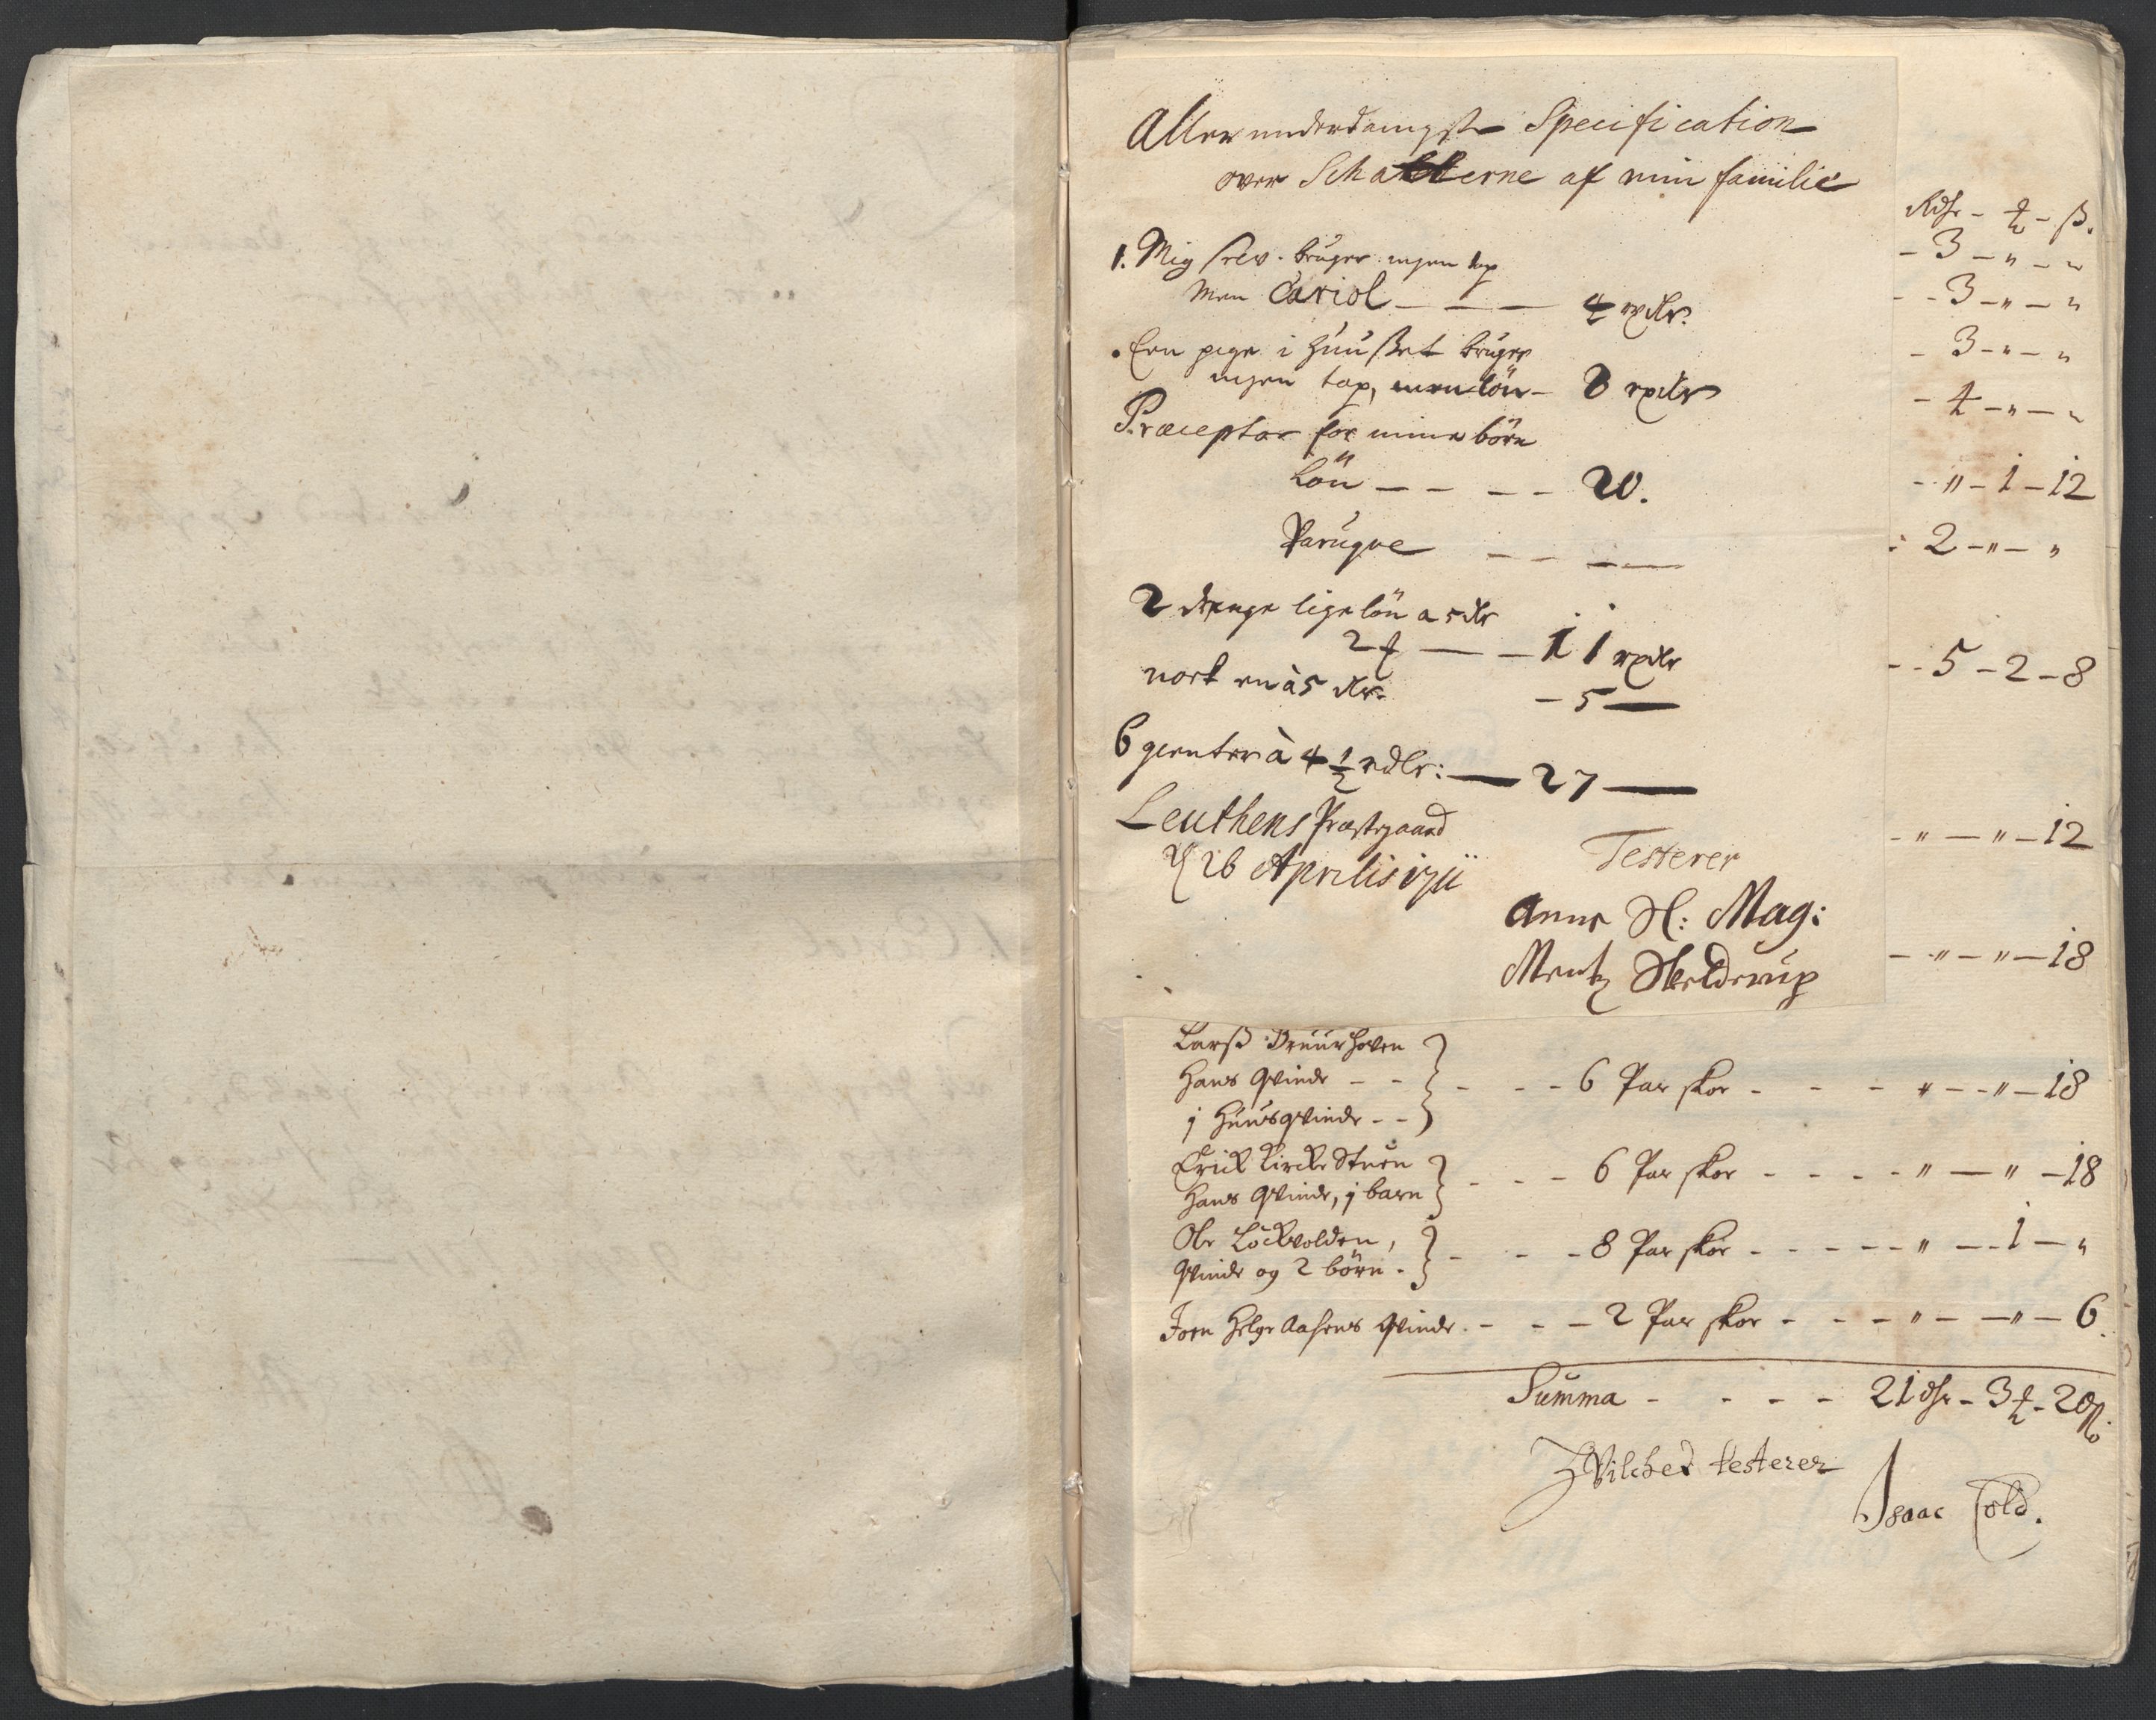 Allerunderdanigste Specification
over Schatterne af min familie
1. Mig selv. bruger ingen top
men Cariol — — — 4 rxdlr.
Een pige i Huusset bruger
ingen top, men lön – 8 rxdlr
Præceptor for mine börn
Lön — – — – 20.
Paruque — – — —
2 drenge lige lön a 5 dlr
2 ƒ — — 11 rxdlr
nock en à 5 dlr. – 5 —
6 gienter à 4 1/2 rdlr: — 27 —
Leuthens Præstegaard
26 Aprilis 1711
Testerer
Anne Sl: Mag:
Mentz Skelderup
Rdr – – ß.
– 3 – " – "
– – 3 – " – "
– 3 – " – "
– 4 – " – "
– " – 1 – 12
: 2 – " – "
– – 5 – 2 – 8
– " — " – 12
– " – " – 18
Larß
Hans Qvinde – –
1 Huusqvinde – – } – – – 6 Par skoe – – – " – – " – 18
Erick Kircke Stuen
Hans Qvinde, 1 barn } – – – 6 Par skoe – – – – " — " – 18
Ole Löckvolden,
Qvinde og 2 börn – } – – – 8 Par skoe – – – – – " – – 1 – "
Joen Helge Aasens Qvinde – – – 2 Par skoe – – – " – – " – 6.
Summa – – – – 21 dr – 3 – 20 ß.
Hvilched testerer
Isaac Told.